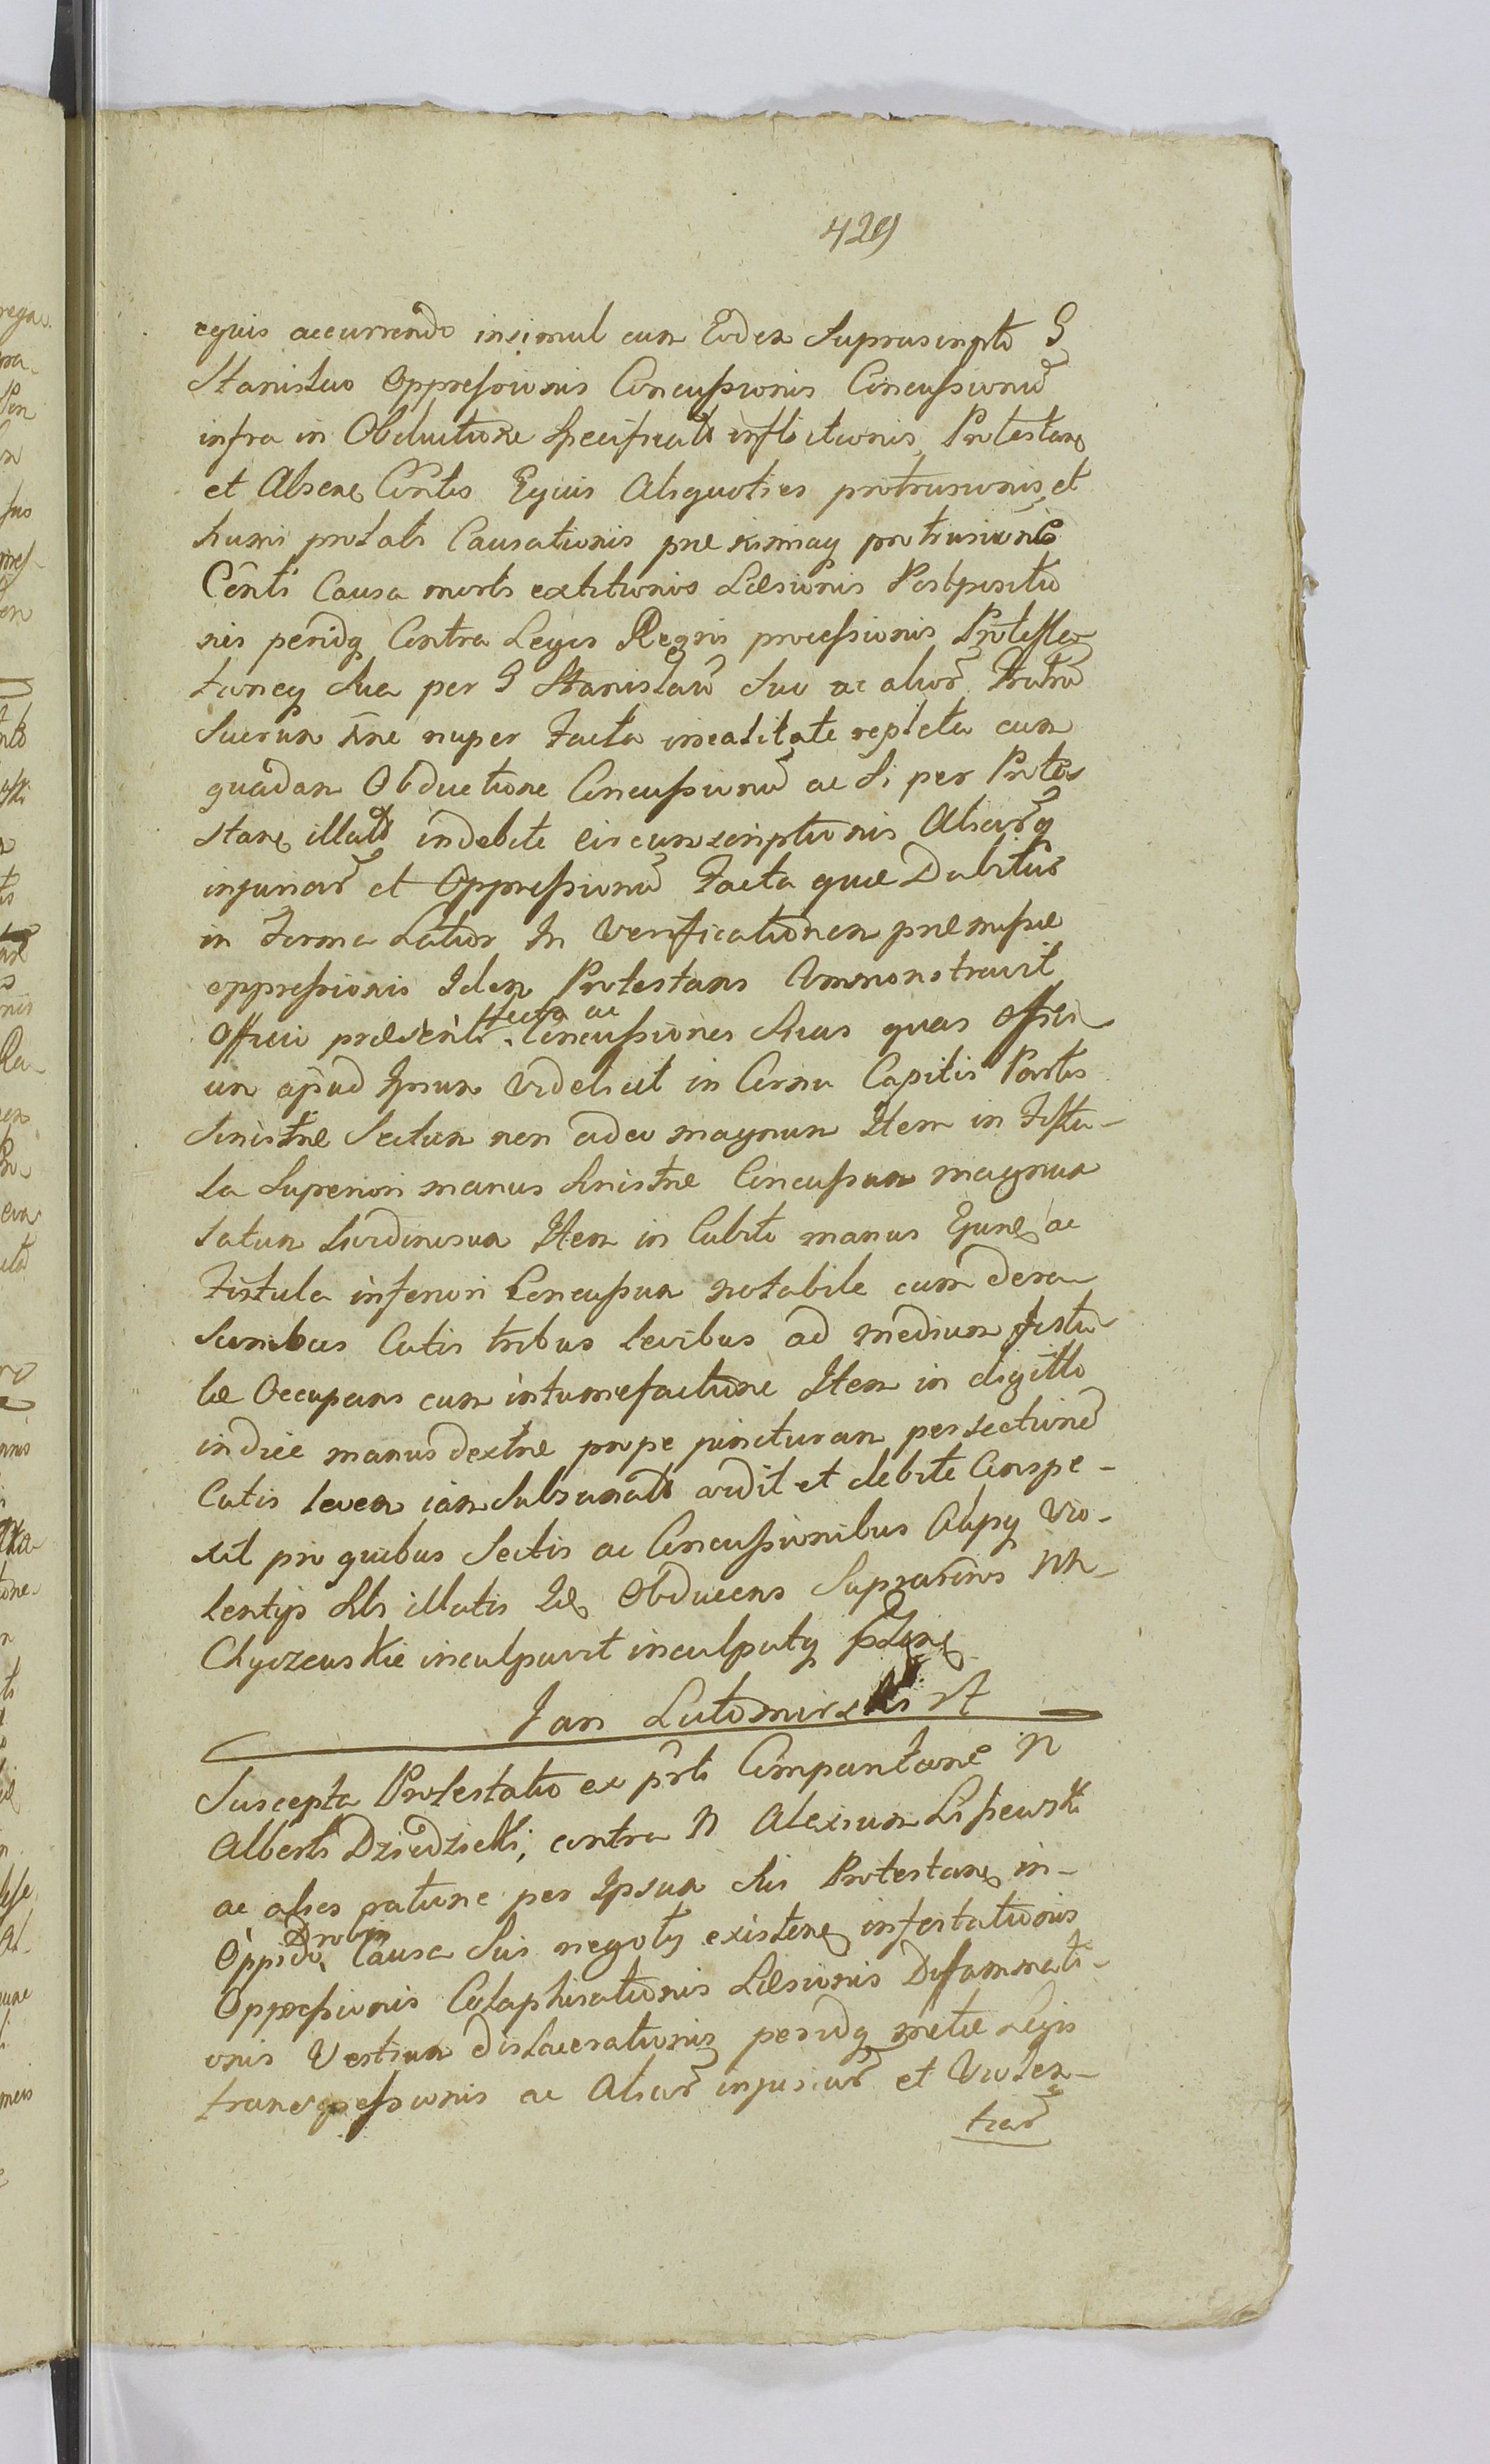 429
equis accurrendo insimul cum Eodem Suprascripto G
Stanislao Oppressionis Concussionis Concussionũ
infra in Obductione Specificatã inflictionis, Protestans
et Absens Contis Equis Aliquoties protrusionis et
humi prolati Causationis pre protrusionis
Conti Causa mortis extitionis Læsionis Postpositio
nis peridq Contra Leges Regni processionis Protesta
tioneq Sua per G Stanislaũ Suo ac alior̃ Fratrũ
Suorum nuper Facta inealitate repleta cum
quadam Obductione Concussionũ ac Si per Protes
stans illatã indebite circumscriptionis Aliar̃q
injuriar̃ et Oppressionũ Facta quæ Dabitur
in Forma Latior In Verificationem præmissæ
oppressionis Idem Protestans Commonstravit
Secta ac
Officio præsenti Concussiones Suas quas Offici
um apud Ipsum Videlicet in Cornu Capitis Partis
Sinistræ Sectum non adeo magnum Item in Fistu-
la Superiori manus Sinistræ Concussum magnum
latum Livorosum Item in Cubito manus Ejusdem ac
Fistula inferiori Concussum notabile cum dera
suribus Cutis tribus levibus ad medium fistu
læ Occupans cum intumefactione Item in digitto
indice manus dextræ prope juncturam persectionẽ
Cutis levem iam Subsanatã vidit et debite Conspe-
xit pro quibus Sectis ac Concussionibus Aliisq Vio-
lentijs Sibi illatis Idem Obducens Suprascriptos NN
Chyczewskie inculpavit inculpatq
Jan Lutomirski
Suscepta Protestatio ex prti Comparitione N
Alberti Dziedzicki, contra N Alexium Lissewski
ac alios ratione per Ipsum Sui Protestans in
Drobin
Oppido Causa Sui negotij existens infestationis
Oppressionis Colaphisationis Læsionis Diffammati-
onis Vestium dislacerationis peridq Legis
transgressionis ac Aliar̃ injuriar̃ et Violen-
tiar̃